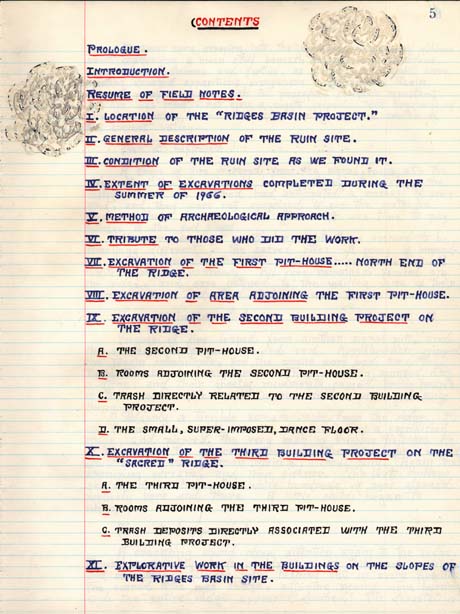 5
(CONTENTS
PROLOGUE.
INTRODUCTION.
RESUME OF FIELD NOTES.
I. LOCATION OF THE "RIDGES BASIN PROJECT."
II. GENERAL DESCRIPTION OF THE RUIN SITE.
III. CONDITION OF THE RUIN SITE AS WE FOUND IT.
IV. EXTENT OF EXCAVATIONS COMPLETED DURING THE
SUMMER OF 1966.
V. METHOD OF ARCHAEOLOGICAL APPROACH.
VI. TRIBUTE TO THOSE WHO DID THE WORK.
VII. EXCAVATION OF THE FIRST PIT-HOUSE..... NORTH END OF
THE RIDGE.
VIII. EXCAVATION OF AREA ADJOINING THE FIRST PIT-HOUSE.
IX. EXCAVATION OF THE SECOND BUILDING PROJECT ON
THE RIDGE.
A. THE SECOND PIT-HOUSE.
B. ROOMS ADJOINING THE SECOND PIT-HOUSE.
C. TRASH DIRECTLY RELATED TO THE SECOND BUILDING
PROJECT.
D. THE SMALL, SUPER-IMPOSED, DANCE FLOOR.
X. EXCAVATION OF THE THIRD BUILDING PROJECT ON THE
"SACRED" RIDGE.
A. THE THIRD PIT-HOUSE.
B. ROOMS ADJOINING THE THIRD PIT-HOUSE.
C. TRASH DEPOSITS DIRECTLY ASSOCIATED WITH THE THIRD
BUILDING PROJECT.
XI. EXPLORATIVE WORK IN THE BUILDINGS ON THE SLOPES OF
THE RIDGES BASIN SITE.